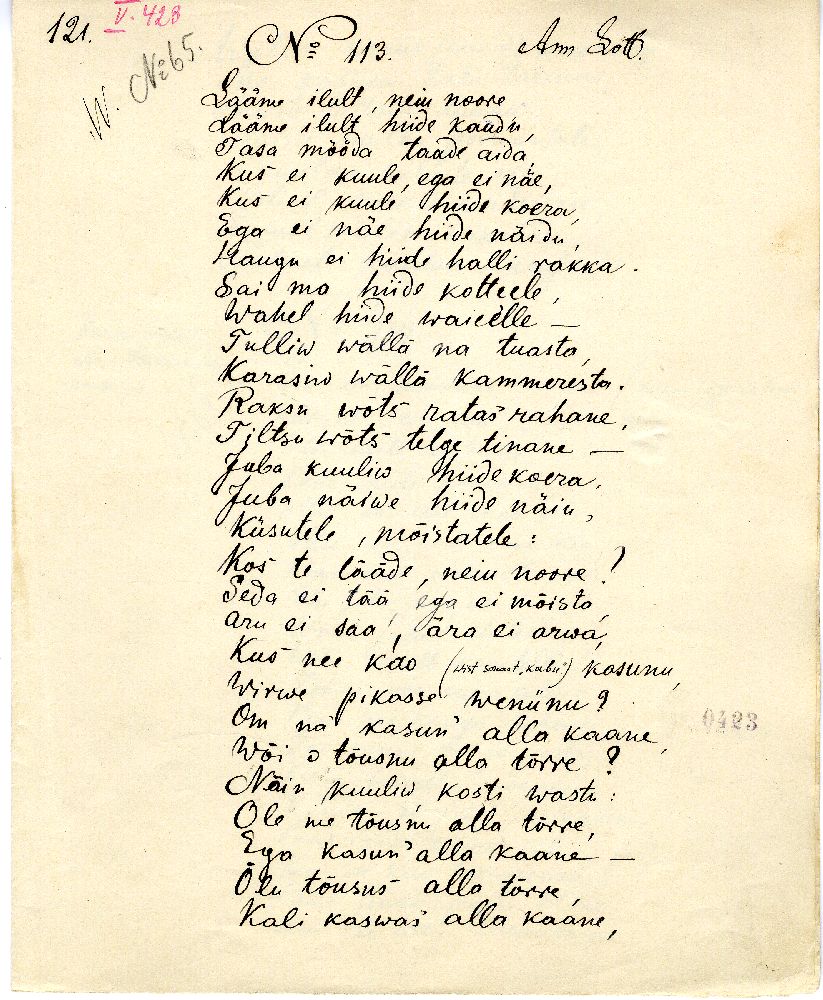 121. V. 428
W. № 65.
№ 113. Ann Lott.
Lääme ilult, neiu noore
Lääme ilult hiide kaudu,
Tasa mööda taade aida,
Kus ei kuule, ega ei näe,
Kus ei kuule hiide koera,
Ega ei näe hiide näidu,
Haugu ei hiide halli rakka.
Sai ma hiide kotteele,
Wahel hiide waieelle —
Tulliw wällä na tuasta,
Karasiw wällä kammeresta.
Raksu wõts ratas rahane,
Tiltsu wõts telge tinane —
Juba kuuliw hiide koera,
Juba näiwe hiide näiu,
Küsutele, mõistatele:
Kos te lääde, neiu noore!
Seda ei tää, ega ei mõista,
Aru ei saa', ära ei arwa,
Kus nee kao (wist sonast „kabu") kasunu,
Wirwe pikasse wenünu?
Om na' kasun' alla kaane,
Wõi o tõusnu alla tõrre?
Näiu kuuliw kosti wastu:
Ole me tõusnu alla tõrre,
Ega kasun' alla kaane —
Õlu tõusus alla tõrre,
Kali kaswas alla kaane,
0423